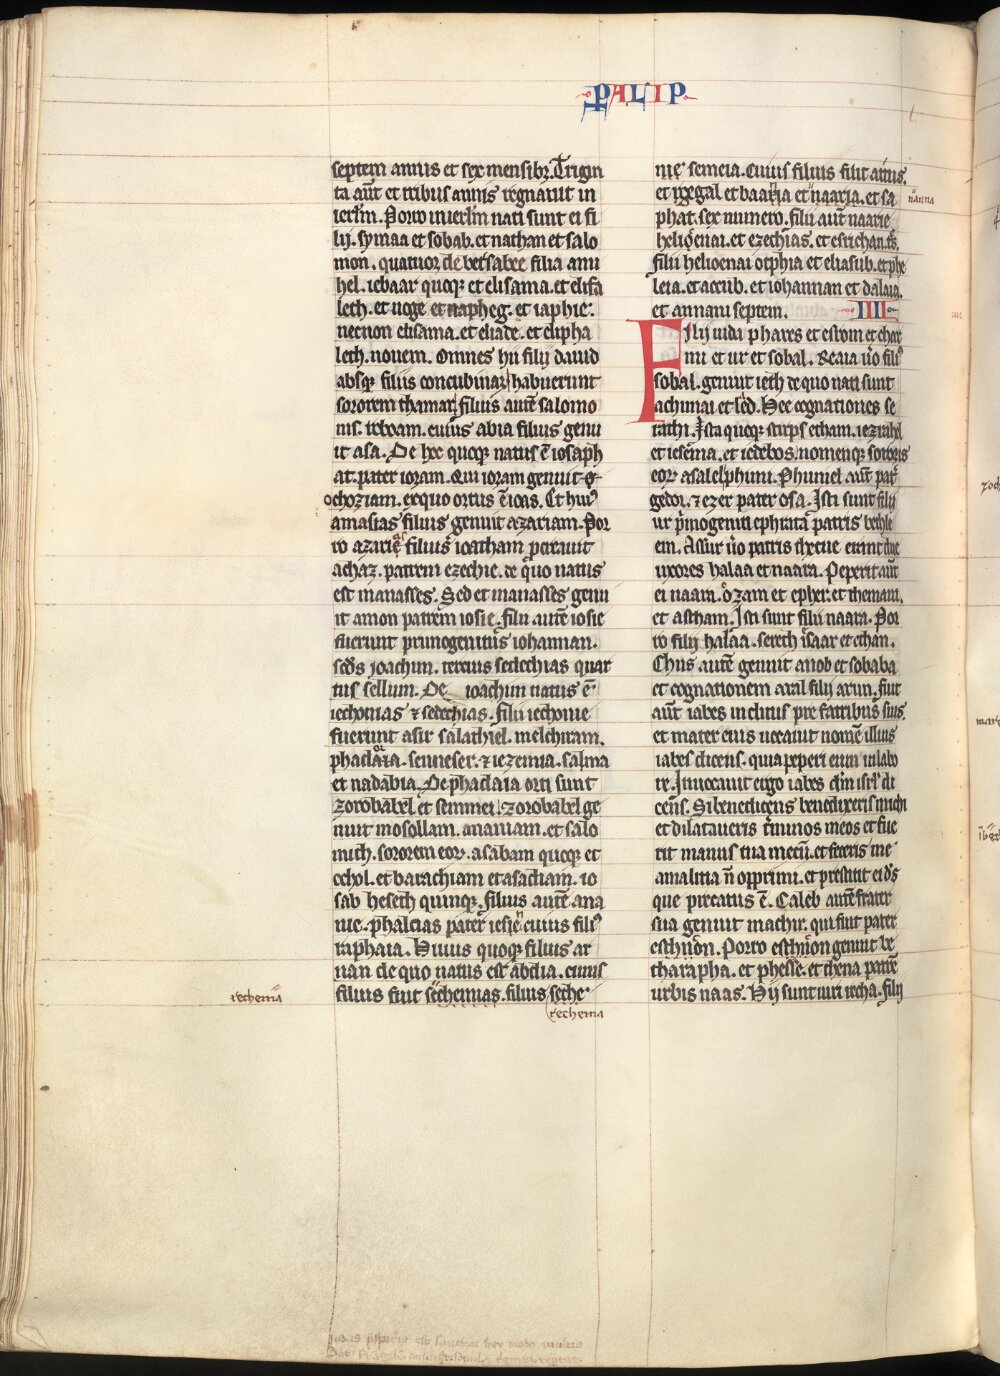 PALIP
septem annis et sex mensibꝫ. Trigin
ta aut̄ et tribus annis regnauit in
ierl̄m. Porro in ierl̄m nati sunt ei fi
lij. symaa et sobab. et nathan et salo
mon. quatuor de betsabee filia ami
hel. iebaar quoqꝫ et elisama. et elifa
leth. et noge et napheg. et iaphie.
necnon elisama. et eliade. et elipha
leth. nouem. Omnes hii filij dauid
absqꝫ filiis concubinaꝝ habuerunt
sororem thamar. filius aute̅ salomo
nis. roboam. cuius abia filius genu
it asa. De hoc quoqꝫ natus e̅ iosaph
at. pater ioram. Qui ioram genuit
ochoziam. ex quo ortus e̅ ioas. Et huiꝰ
amasias filius genuit azariam. Por
ro azarie filius ioatham procreauit
achaz. patrem ezechie. de quo natus
est manasses. Sed et manasses genu
it amon patrem iosie. filii aute̅ iosie
fuerunt primogenitus iohannan.
scd̄s joachim. tercius sedechias quar
tus sellum. De ioachim natus e̅
iechonias ⁊ sedechias. filii iechonie
fuerunt asir salathiel. melchiram.
phadaia. senneser. ⁊ iezemia. salma
et nadabia. De phadaia orti sunt
zorobabel et semmei. zorobabel ge
nuit mosollam. ananiam. et salo
mith. sororem eoꝝ. asabam quoqꝫ et
ochol. et barachiam et asadiam. io
sab heseth quinqꝫ. filius aute̅ ana
nie. phalcias pater iesie cuius filiꝰ
raphaia. Huius quoqꝫ filius ar
nan de quo natus est abdia. cuius
filius fuit sechenias. filius seche
rechenia
rechema
nie semeia. cuius filius
et iegal et baaria et naaria. et sa
phat. sex numero. filii aut̄ naarie
helioenai. et ezechias. et esrichan. tꝭs.
filii helioenai otphia et eliasub. et phe
leia. et accub. et iohannan et dalaia.
et annani septem. IIII
Filij iuda phares et esrom et char
mi et ur et sobal. Reaia uo̅ filiꝰ
sobal. genuit ieth de quo nati sunt
achimai et led. Hee cognationes se
rathi. Ista quoqꝫ stirps etham. iezrahel
et iesema. et iedebos. nomenqꝫ sororis
eoꝝ asalelphuni. Phuniel aut̄ pat̄
gedor. ⁊ ezer pater osa. Isti sunt filij
ur p̄mogeniti ephrata patris bethle
em. Assur uo̅ patris thecue erant due
uxores halaa et naara. Peperit aut̄
ei naara. ozam et epher. et themani.
et astham. Isti sunt filii naara. Por
ro filij halaa. sereth isaar et ethan.
Chus aute̅ genuit anob et sobaba
et cognationem aral filij arun. fuit
aut̄ iabes inclitus pre fratribus suis.
et mater eius uocauit nome̅ illius
iabes dicens. quia peperi eum in labo
re. Inuocauit ergo iabes dm̄ isrl̄ di
cens. Si benedicens benedixeris michi
et dilataueris t̄minos meos et fue
rit manus tua mecu̅. et feceris me
a malitia n̄ opprimi. et prestitit ei ds̄
que precatus e̅. Caleb aute̅ frater
sua genuit machir. qui fuit pater
esthron. Porro esthron genuit be
tharapha. et phesse. et thena patre̅
urbis naas. Hij sunt uiri recha. filij